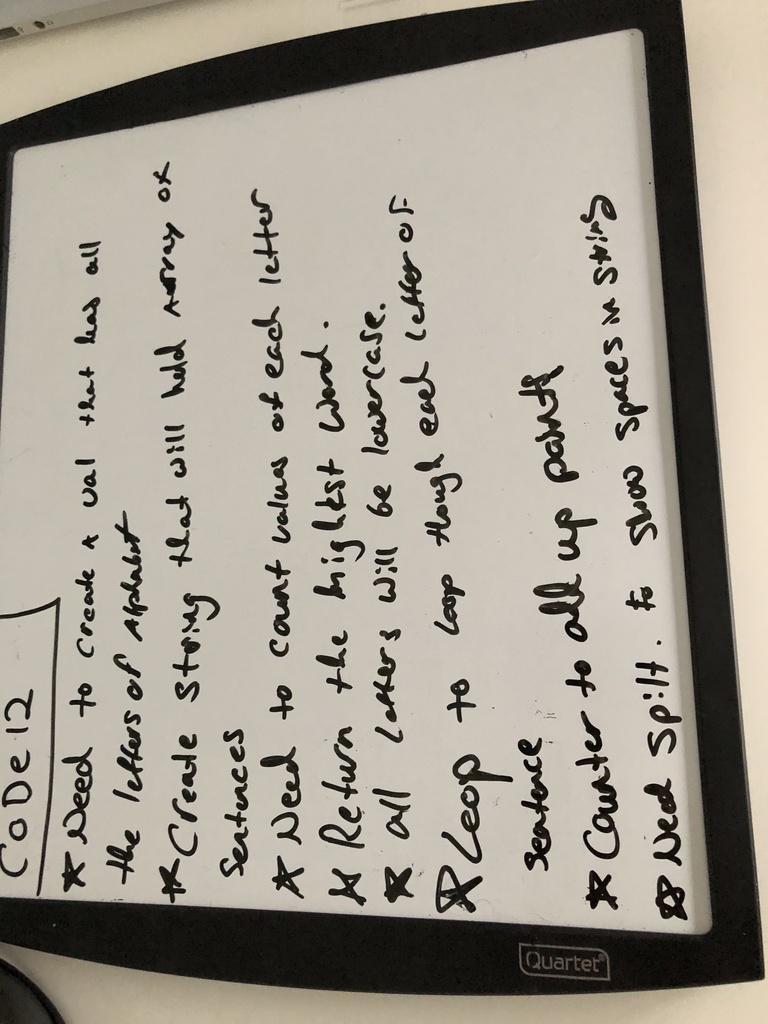 CODE 12
* Need to create a val that has all
the letters of Alphabet
* Create String that will hold Array of
Sentences
* Need to count values of each letter
* Return the highest word.
* all letters will be lowercase.
* Loop to loop though each letter of
sentence
* Counter to add up points
* Need Spilt. to show spaces in string
Quartet